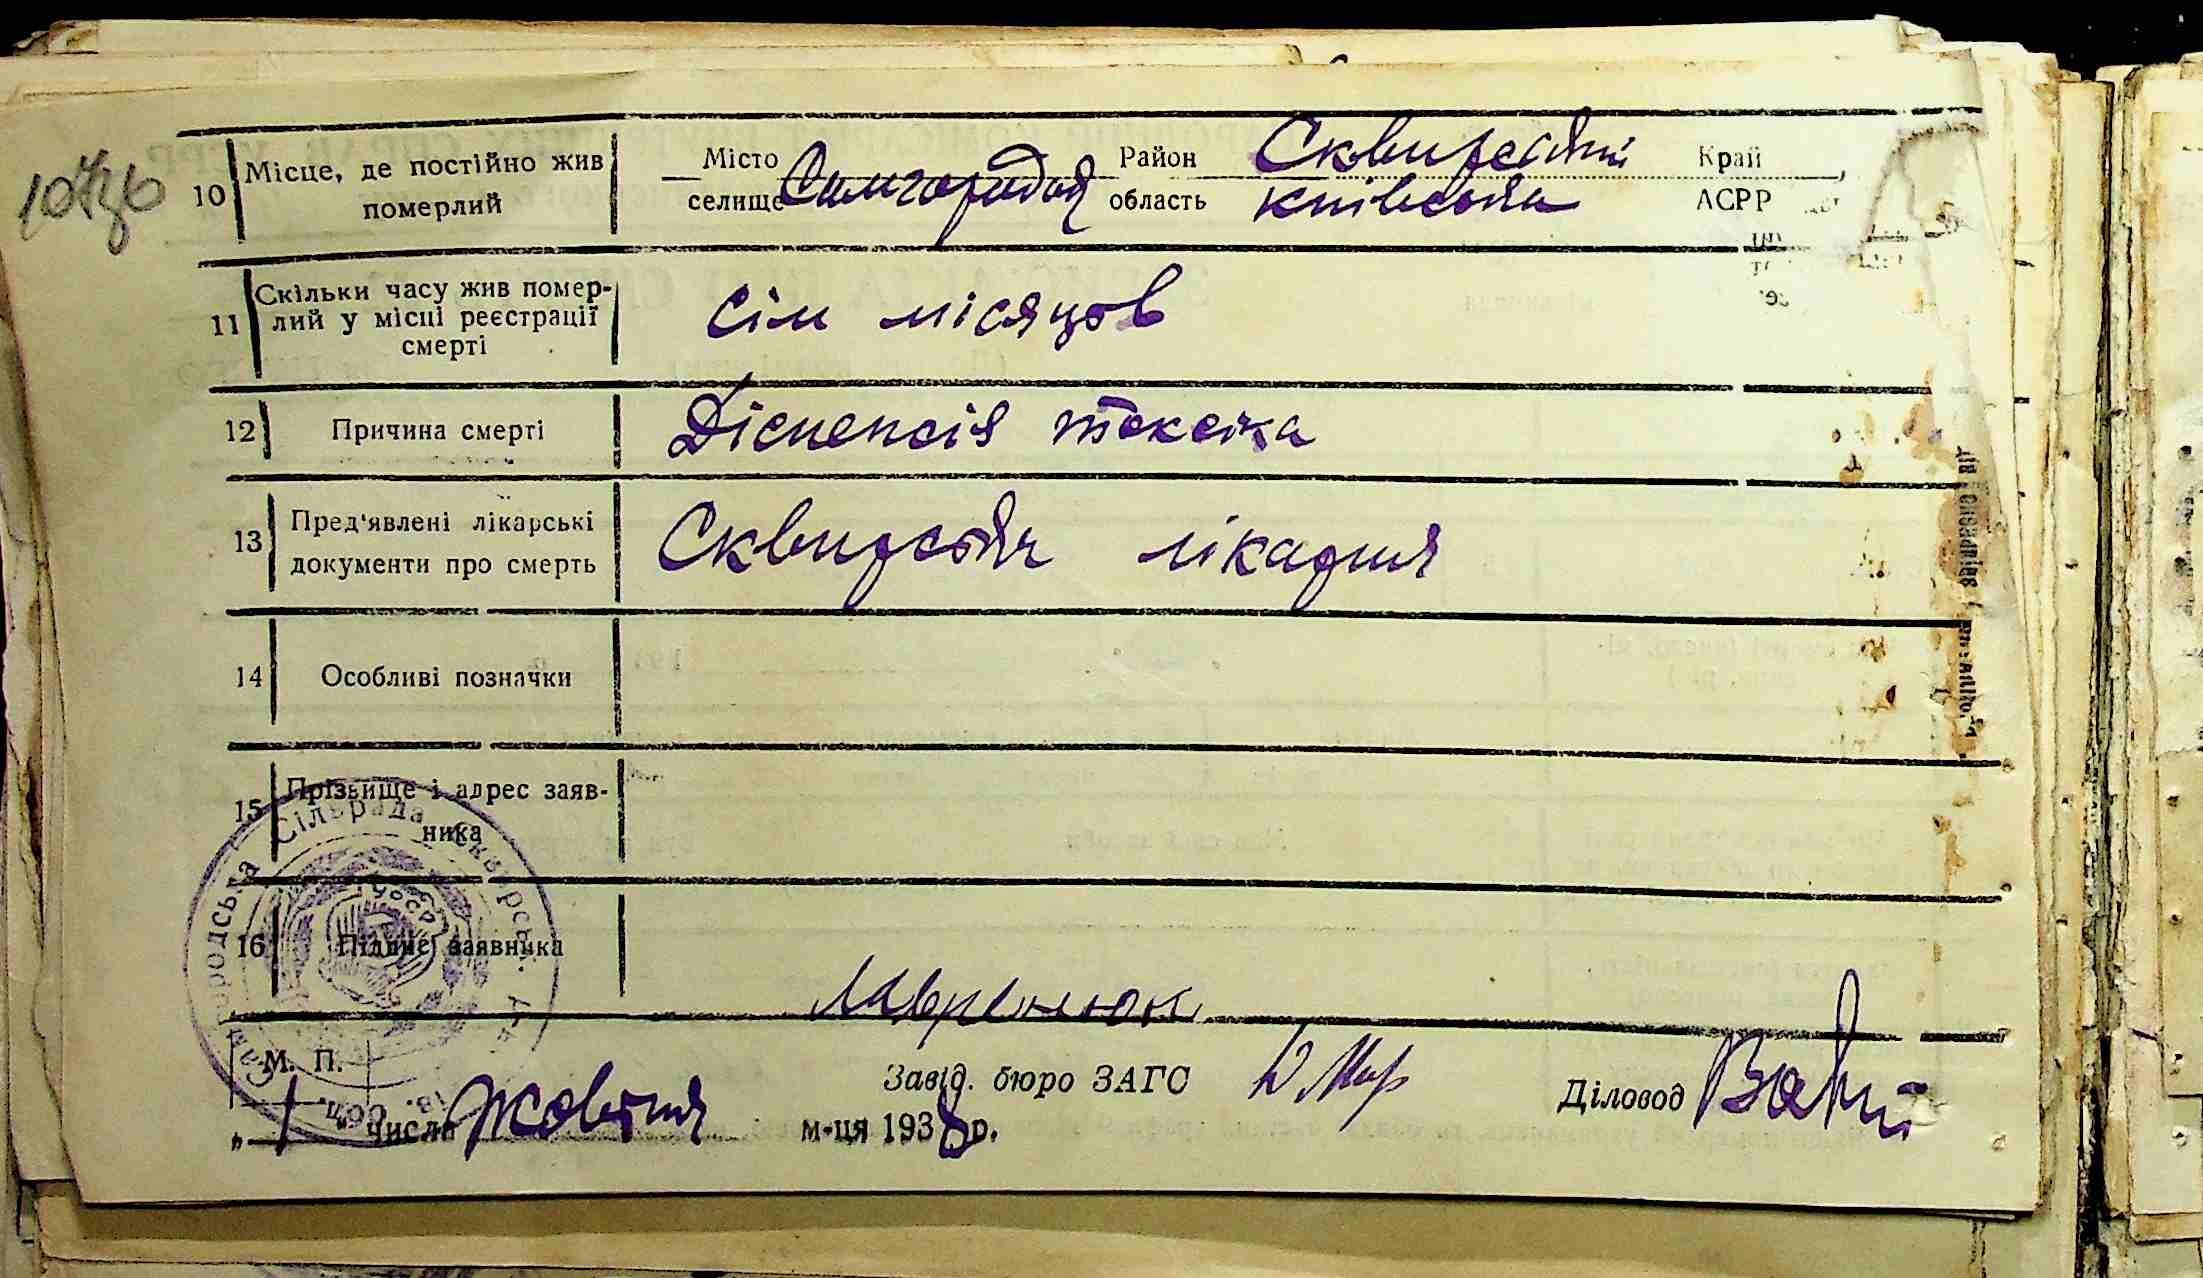 10 Місце, де постійно жив померлий
Місто селище Самгородок Район Сквирський Край
область Київська АСРР
11 Скільки часу жив помер-
лий у місці реєстрації
смерті
сім місяцов
12 Причина смерті
Діспепсія токсіка
13 Пред'явлені лікарські
документи про смерть
Сквирська лікарня
14 Особливі позначки
15 Прізвище і адрес заяв-
ника
16 Підпис заявника
Лавренюк
М. П.
Завід. бюро ЗАГС
Діловод
„ 1 " числа Жовтня м-ця 1938 р.
Самгородська Сільрада Сквирс
УРСР